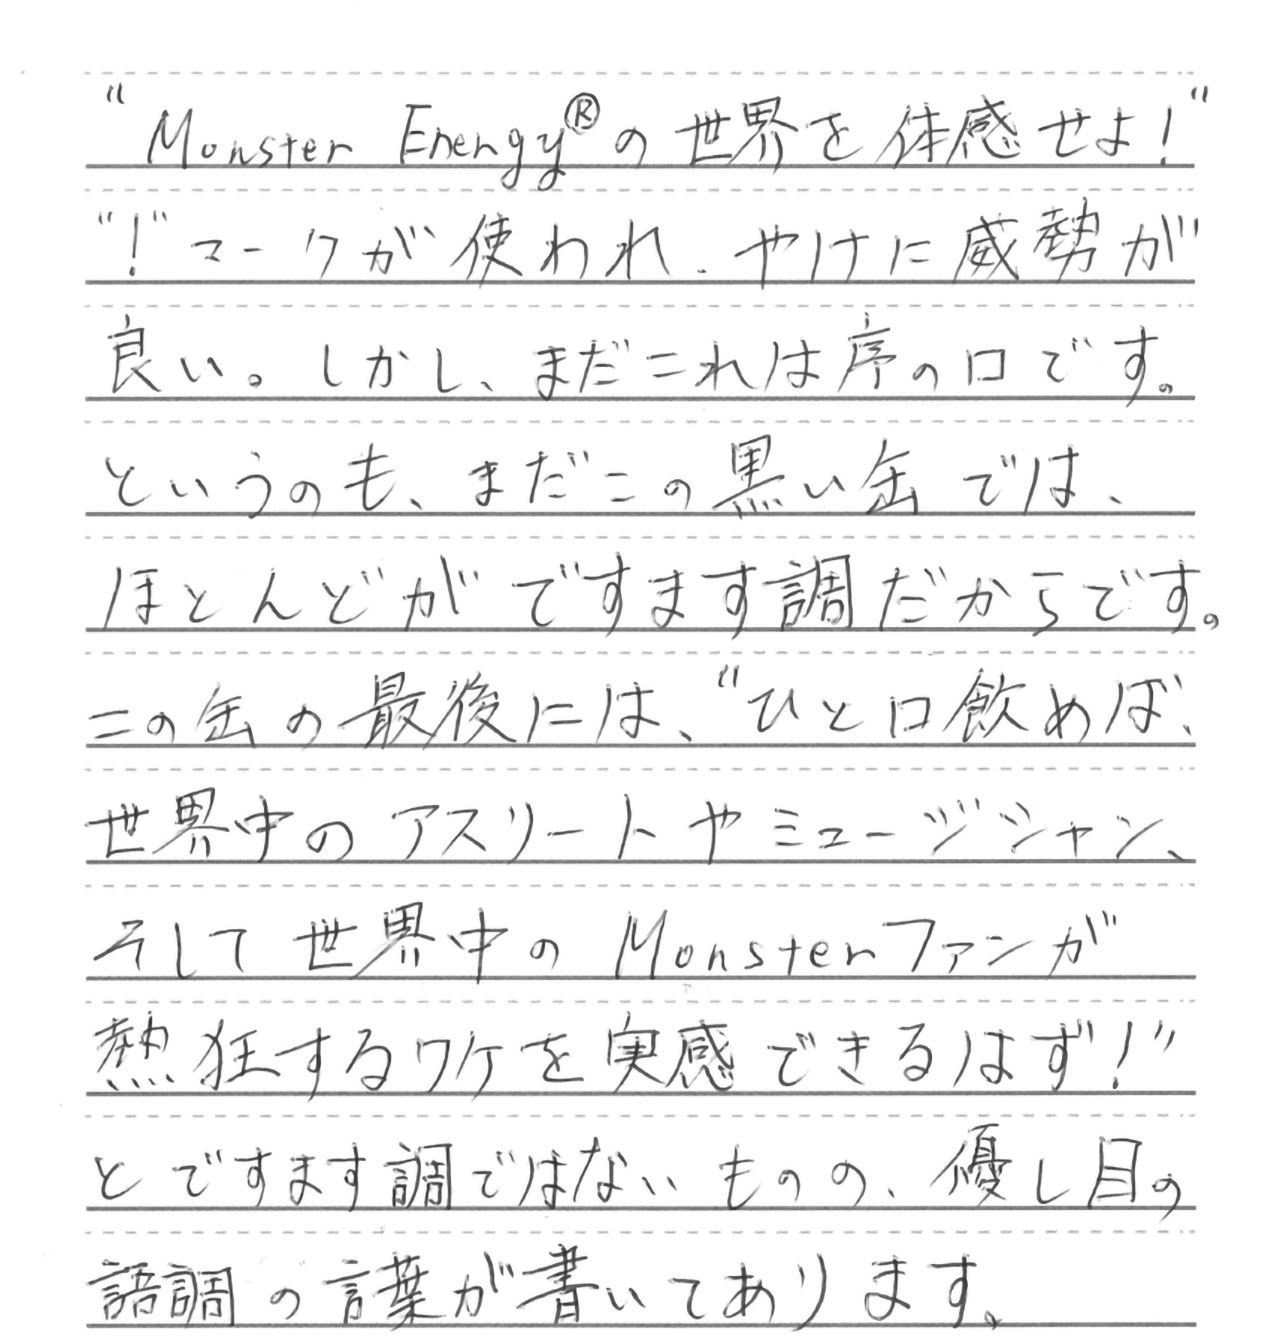 “Monster Energy®の世界を体感せよ！“
“！“マークが使われ、やけに威勢が
良い。しかし、まだこれは序の口です。
というのも、まだこの黒い缶では、
ほとんどがですます調だからです。
この缶の最後には、“ひと口飲めば、
世界中のアスリートやミュージシャン、
そして世界中のMonsterファンが
熱狂するワケを実感できるはず！”
とですます調ではないものの、優し目の
語調の言葉が書いてあります。